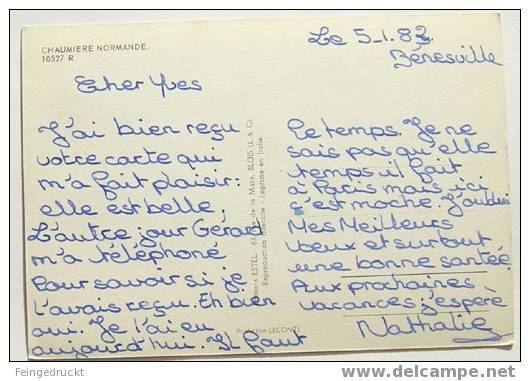 CHAUMIERE NORMANDE.
10527 R
Le 5-1.83.
Bénesville
Cher Yves
J'ai bien reçu
votre carte qui
m'a fait plaisir:
elle est belle,
L'autre jour Gérard
m'a téléphoné
Pour savoir si je
l'avais reçu. Eh bien
oui. Je l'ai eu
aujourd'hui. Il faut
Editions ESTEL - 63, rue de la Mare, BLOIS (L. & C.)
Reproduction interdite - Imprimé en Italie
Production LECONTE
le temps. Je ne
sais pas qu'elle
temps il fait
à Paris mais ici
c'est moche.
Mes Meilleurs
voeux et surtout
une bonne santée
Aux prochaines
vacances j'espère
Nathalie
Fingedruckt
www.delcampe.net